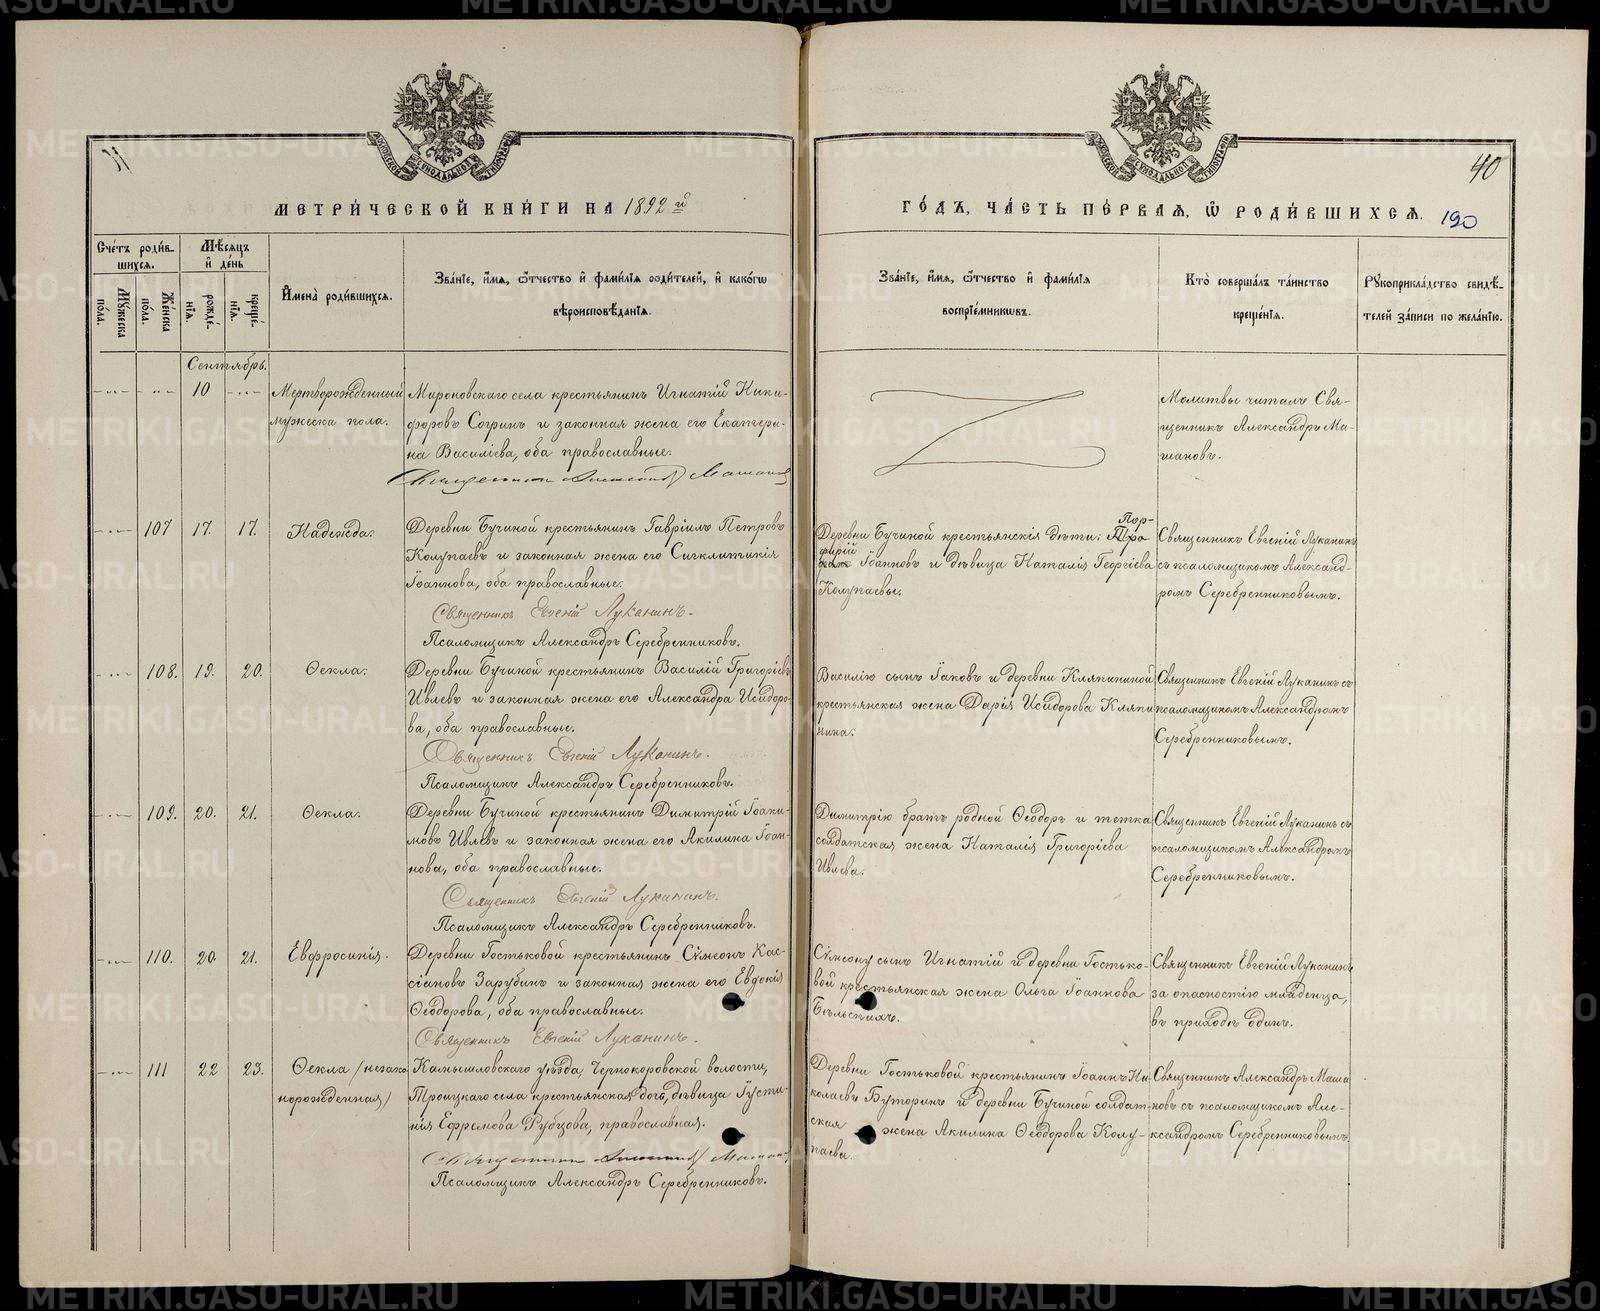 METRIKI.GASO-URAL.RU
МЕТРИ́ЧЕСКОЙ КНИ́ГИ НА 1892 й
ГО́ДЪ, ЧА́СТЬ ПЕ́РВАЯ, Ѡ҆ РОДИ́ВШИХСЯ.
40
190
Сче́тъ роди́в-
шихся.
Мѣ́сяцъ
и҆ де́нь
Му́жеска по́ла.
Же́нска по́ла.
рожде́-
нїя.
креще́-
нїя.
И҆мена̀ роди́вшихся.
Зва́нїе, и҆́мя, ѻ҆́тчество и҆ фами́лїя роди́телей, и҆ како́гѡ
вѣроисповѣ́данїя.
Зва́нїе, и҆́мя, ѻ҆́тчество и҆ фами́лїя
воспрїе́мникѡвъ.
Кто̀ соверша́лъ та́инство
креще́нїя.
Рꙋкоприкла́дство свидѣ́-
телей за́писи по жела́нїю.
Сентябрь.
10
Мертворожденный
мужеска пола.
Мироновскаго села крестьянинъ Игнатій Ники-
форовъ Согринъ и законная жена его Екатери-
на Василіева, оба православные.
Священникъ Александръ Машановъ
Молитвы читалъ Свя-
щенникъ Александръ Ма-
шановъ.
107 17. 17. Надежда.
Деревни Бучиной крестьянинъ Гавріилъ Петровъ
Колупаевъ и законная жена его Сигклитикія
Іоаннова, оба православные.
Священникъ Евгеній Луканинъ.
Псаломщикъ Александръ Серебренниковъ.
Пор-
Деревни Бучиной крестьянскія дѣти: Про
фирій
Іоанновъ и дѣвица Наталія Георгіева
Колупаевы.
Священникъ Евгеній Луканинъ
съ псаломщикомъ Александ-
ромъ Серебренниковымъ.
108. 19. 20. Ѳекла.
Деревни Бучиной крестьянинъ Василій Григоріевъ
Ивлевъ и законная жена его Александра Исидоро-
ва, оба православные.
Священникъ Евгеній Луканинъ.
Псаломщикъ Александръ Серебренниковъ.
Василію сынъ Іаковъ и деревни Клякиниой
крестьянская жена Дарія Исидорова Кляпи
ника.
Священникъ Евгеній Луканинъ съ
псаломщикомъ Александромъ
Серебренниковымъ.
109. 20. 21. Ѳекла.
Деревни Бучиной крестьянинъ Димитрій Іоаки-
мовъ Ивлевъ и законная жена его Акилина Іоан-
нова, оба православные.
Священникъ Евгеній Луканинъ.
Псаломщикъ Александръ Серебренниковъ.
Димитрію братъ родной Ѳеодоръ и тетка
солдатская жена Наталія Григоріева
Ивлева.
Священникъ Евгеній Луканинъ съ
псаломщикомъ Александромъ
Серебренниковымъ.
110. 20. 21. Евфросинія.
Деревни Гостьковой крестьянинъ Сѵмеонъ Кас-
сіановъ Зарубинъ и законная жена его Евдокія
Ѳеодорова, оба православные.
Священникъ Евгеній Луканинъ.
Сѵмеону сынъ Игнатій и деревни Гостько-
вой крестьянская жена Ольга Іоаннова
Бѣльскихъ.
Священникъ Евгеній Луканинъ
за опасностію младенца,
въ приходѣ одинъ.
111 22 23. Ѳекла /незако
норожденная/
Камышловскаго уѣзда, Чернокоровской волости,
Троицкаго села крестьянская дочь, дѣвица Іусти-
нія Ефремова Рубцова, православная.
Священникъ Александръ Машановъ
Псаломщикъ Александръ Серебренниковъ.
Деревни Гостьковой крестьянинъ Іоаннъ Ни-
колаевъ Буторинъ и деревни Бучиной солдат-
ская жена Акилина Ѳеодорова Колу-
паева.
Священникъ Александръ Маша
новъ съ псаломщикомъ Але-
ксандромъ Серебренниковымъ.